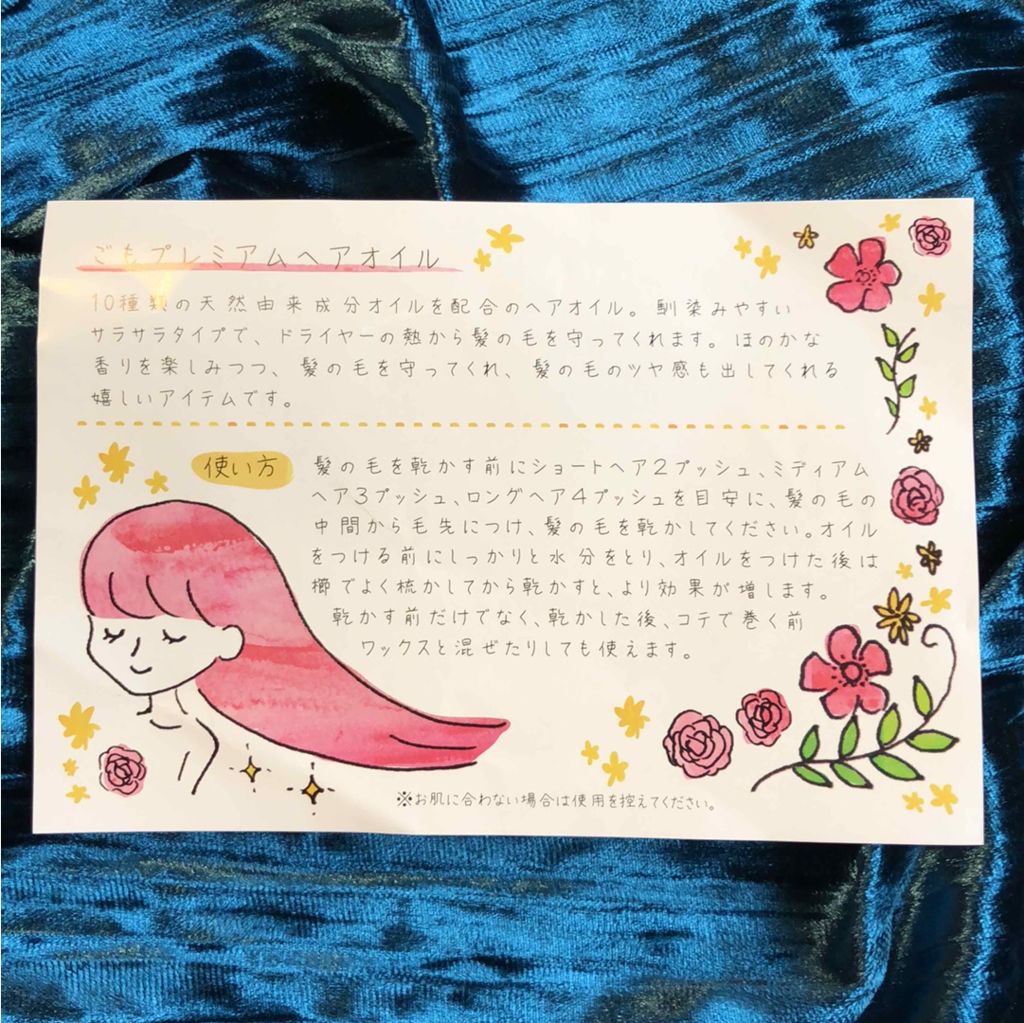 ごもプレミアムヘアオイル
10種類の天然由来成分オイルを配合のヘアオイル。馴染みやすい
サラサラタイプで、ドライヤーの熱から髪の毛を守ってくれます。ほのかな
香りを楽しみつつ、髪の毛を守ってくれ、髪の毛のツヤ感も出してくれる
嬉しいアイテムです。
使い方
髪の毛を乾かす前にショートヘア2プッシュ、ミディアム
ヘア3プッシュ、ロングヘア4プッシュを目安に、髪の毛の
中間から毛先につけ、髪の毛を乾かしてください。オイル
をつける前にしっかりと水分をとり、オイルをつけた後は
櫛でよく梳かしてから乾かすと、より効果が増します。
乾かす前だけでなく、乾かした後、コテで巻く前
ワックスと混ぜたりしても使えます。
※お肌に合わない場合は使用を控えてください。